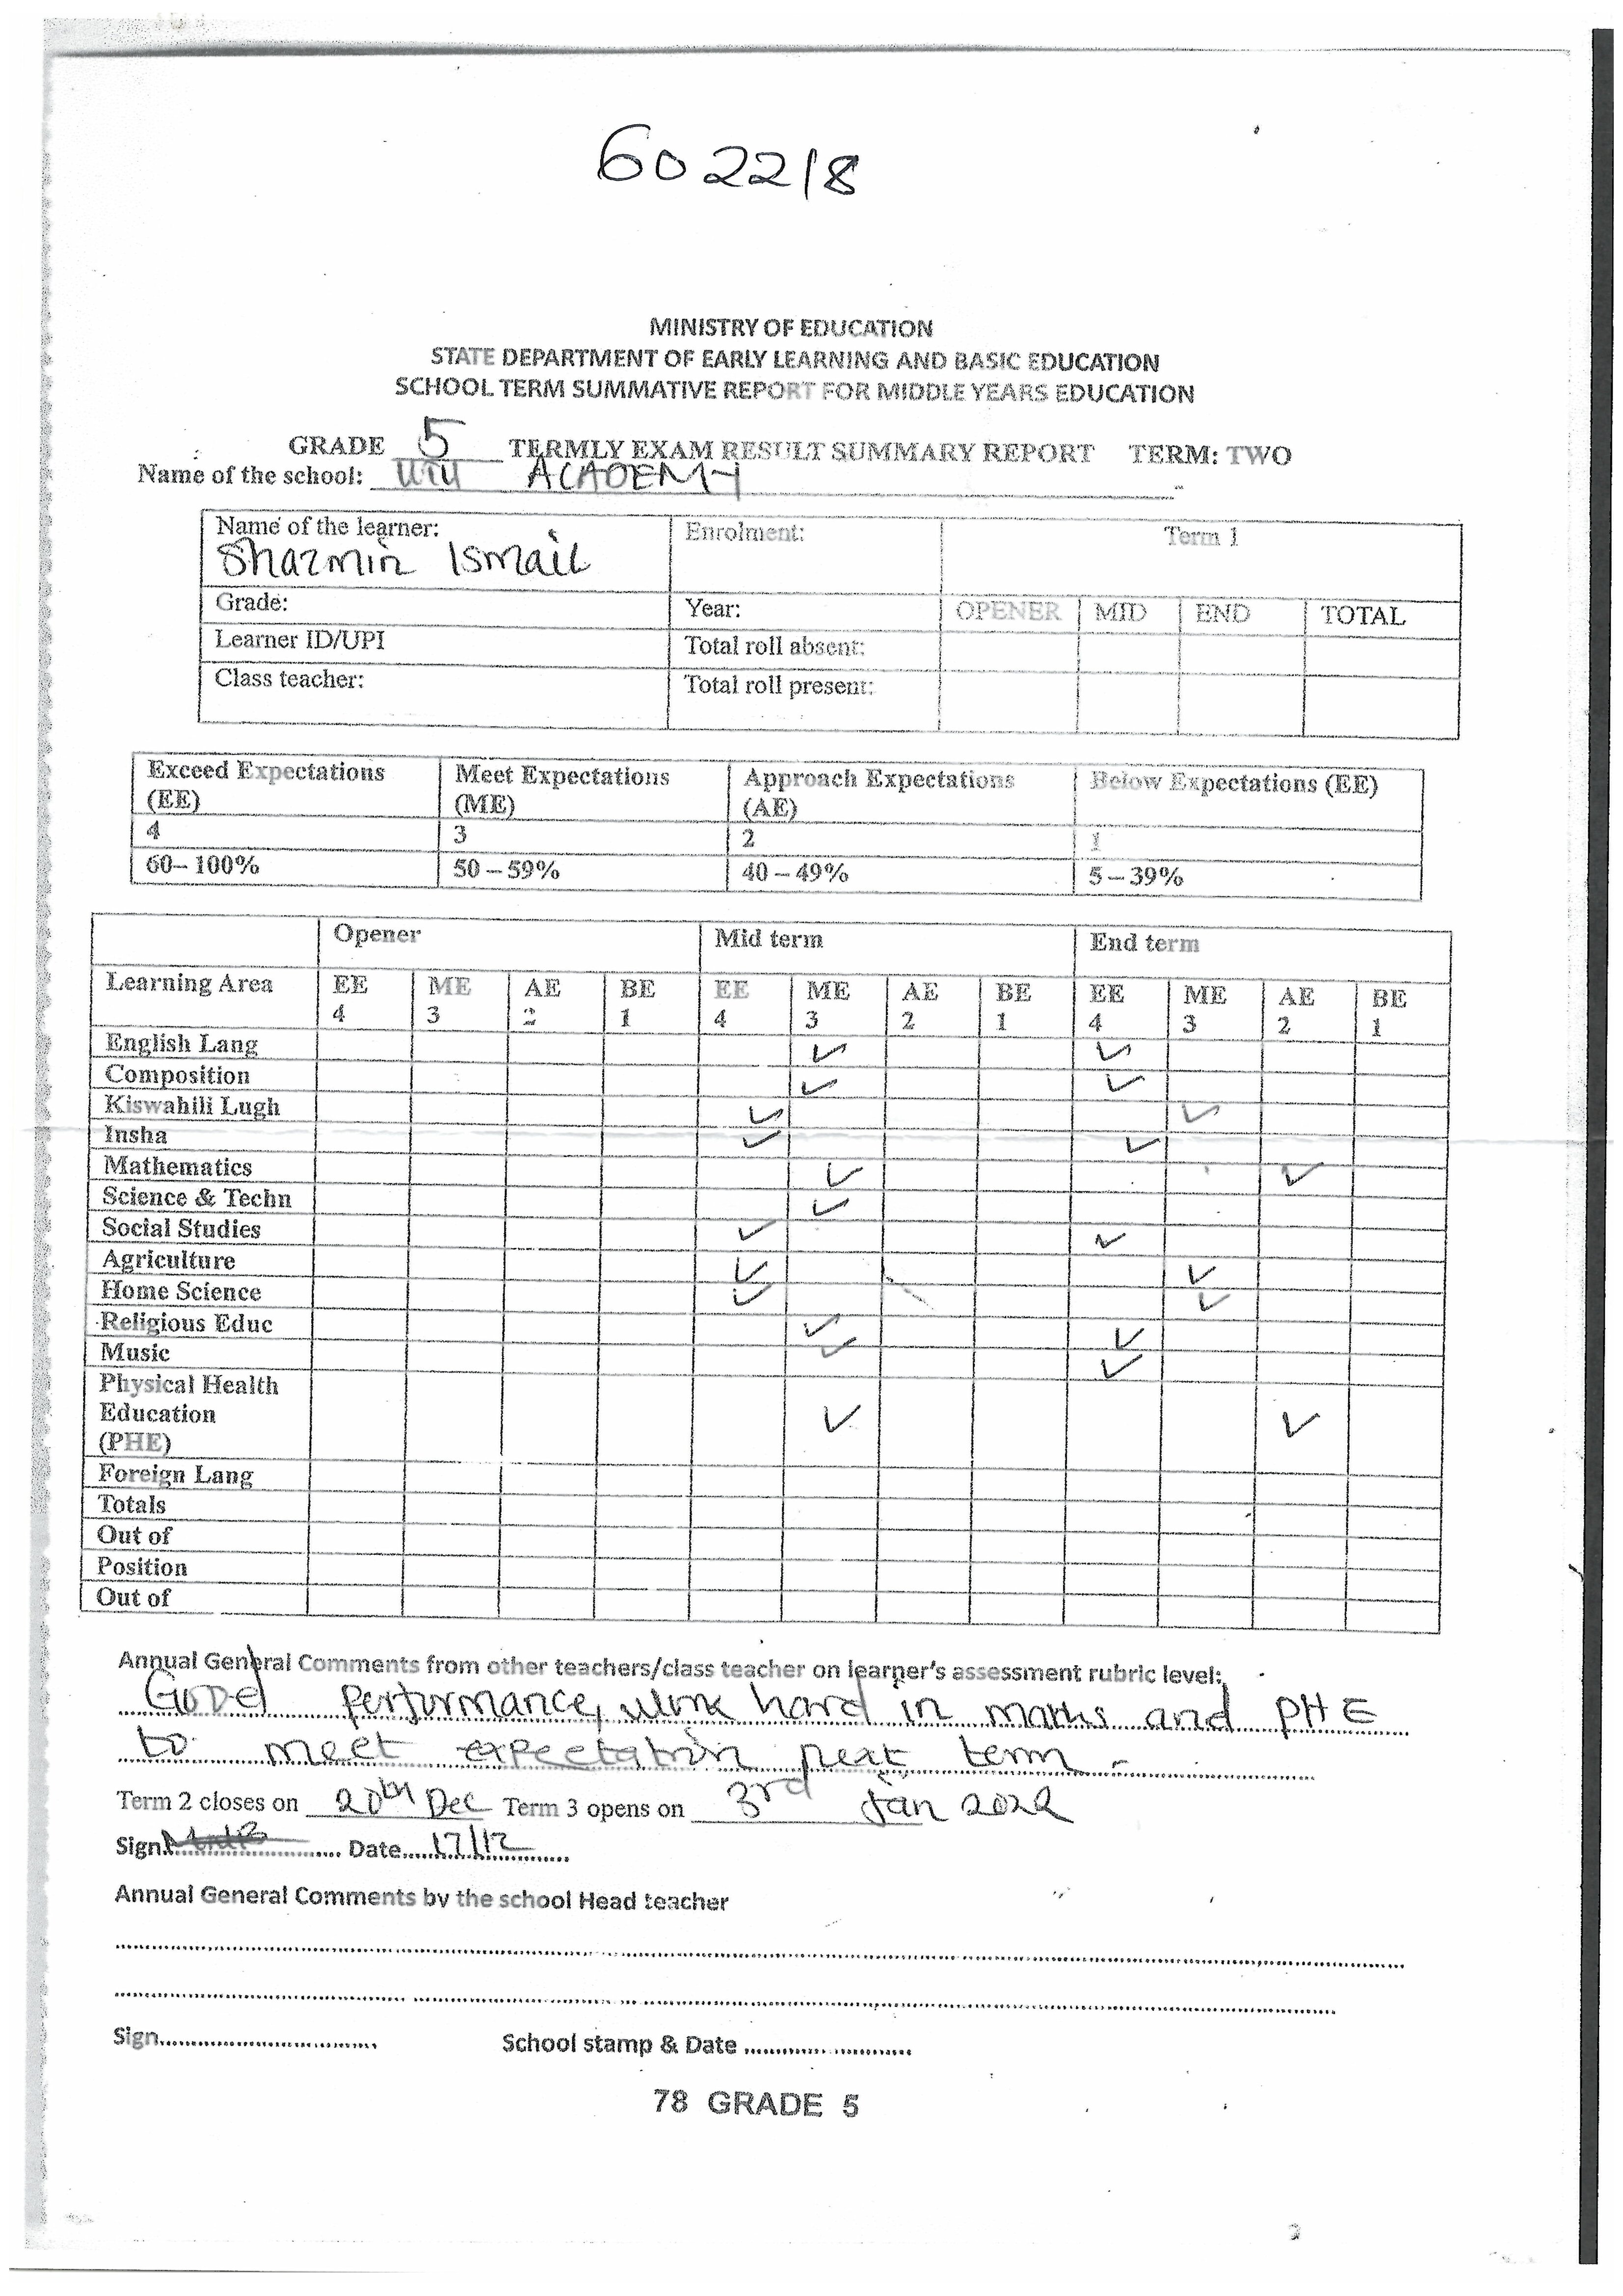 602218
MINISTRY OF EDUCATION
STATE DEPARTMENT OF EARLY LEARNING AND BASIC EDUCATION
SCHOOL TERM SUMMATIVE REPORT FOR MIDDLE YEARS EDUCATION
GRADE 5 TERMLY EXAM RESULT SUMMARY REPORT TERM: TWO
Name of the school: UTU ACADEMY
Name of the learner: Enrolment: Term 1
Sharmin Ismail
Grade: Year: OPENER MID END TOTAL
Learner ID/UPI Total roll absent:
Class teacher: Total roll present:
Exceed Expectations Meet Expectations Approach Expectations Below Expectations (EE)
(EE) (ME) (AE)
4 3 2 1
60– 100% 50 – 59% 40 – 49% 5 – 39%
Opener Mid term End term
Learning Area EE ME AE BE EE ME AE BE EE ME AE BE
4 3 2 1 4 3 2 1 4 3 2 1
English Lang ✓ ✓
Composition ✓ ✓
Kiswahili Lugh ✓ ✓
Insha ✓ ✓
Mathematics ✓ ✓
Science & Techn ✓
Social Studies ✓ ✓
Agriculture ✓ ✓
Home Science ✓ ✓
Religious Educ ✓ ✓
Music ✓ ✓
Physical Health
Education ✓ ✓
(PHE)
Foreign Lang
Totals
Out of
Position
Out of
Annual General Comments from other teachers/class teacher on learner's assessment rubric level:
Good performance, work hard in maths and PHE
to meet expectation next term -
Term 2 closes on 20th Dec Term 3 opens on 3rd Jan 2022
Sign Date 17/12
Annual General Comments by the school Head teacher
Sign School stamp & Date
78 GRADE 5